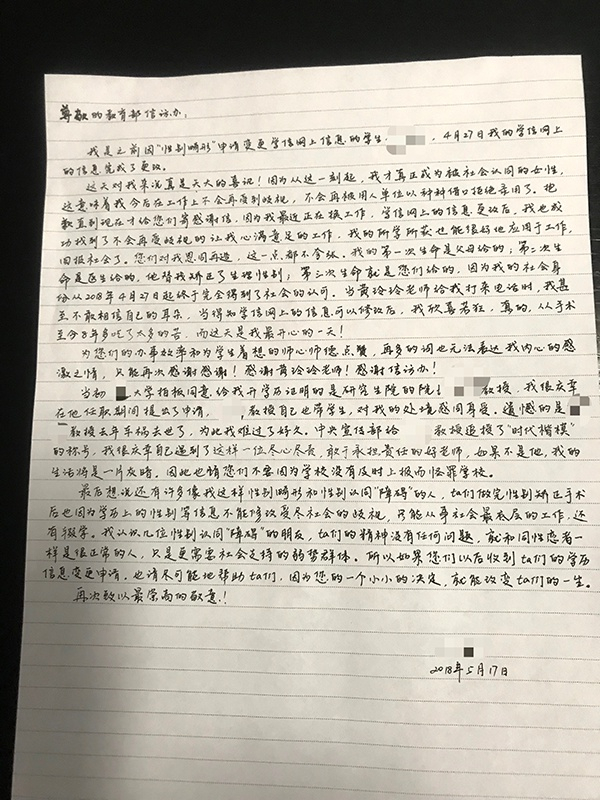 尊敬的教育部信访办：
我是之前因“性别畸形”申请变更学信网上信息的学生，4月27日我的学信网上
的信息完成了更改。
这天对我来说真是天大的喜讯！因为从这一刻起，我才真正成为被社会认同的女性，
这意味着我今后在工作上不会再受到歧视，不会再被用人单位以种种借口拒绝录用了。抱
歉直到现在才给您们寄感谢信，因为我最近正在换工作，学信网上的信息更改后，我也成
功找到了不会再受歧视的让我心满意足的工作，我的所学所获也能很好地应用于工作，
回报社会了。您们对我恩同再造，这一点都不夸张。我的第一次生命是父母给的；第二次生
命是医生给的，他帮我矫正了生理性别；第三次生命就是您们给的，因为我的社会身
份从2018年4月27日起终于完全得到了社会的认可。当黄玲玲老师给我打来电话时，我甚
至不敢相信自己的耳朵，当得知学信网上的信息可以修改后，我欣喜若狂，真的，从手术
至今8年多吃了太多的苦，而这天是我最开心的一天！
为您们的办事效率和为学生着想的师心师德点赞，再多的词也无法表达我内心的感
激之情，只能再次感谢感谢！感谢黄玲玲老师！感谢信访办！
当初大学拍板同意给我开学历证明的是研究生院的院教授，我很庆幸
在他任职期间提出了申请，教授自己也带学生，对我的处境感同身受。遗憾的是
教授去年车祸去世了，为此我难过了好久。中央宣传部给教授追授了“时代楷模”
的称号，我很庆幸自己遇到了这样一位尽心尽责，敢于承担责任的好老师，如果不是他，我的
生活将是一片灰暗。因此也请您们不要因为学校没有及时上报而怪罪学校。
最后想说还有许多像我这样性别畸形和性别认同“障碍”的人，ta们做完性别矫正手术
后也因为学历上的性别等信息不能修改受尽社会的歧视，只能从事社会最底层的工作，还
有辍学。我认识几位性别认同“障碍”的朋友，ta们的精神没有任何问题，就和同性恋者一
样是很正常的人，只是更需要社会支持的弱势群体。所以如果您们以后收到ta们的学历
信息变更申请，也请尽可能地帮助ta们，因为您的一个小小的决定，就能改变ta们的一生。
再次致以最崇高的敬意！
2018年5月17日